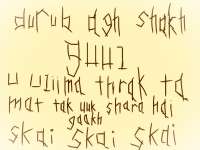 durub agh shakh
guuz
u uzima thrak ta
mat tak uuk shara hai
gaakh
skai skai skai